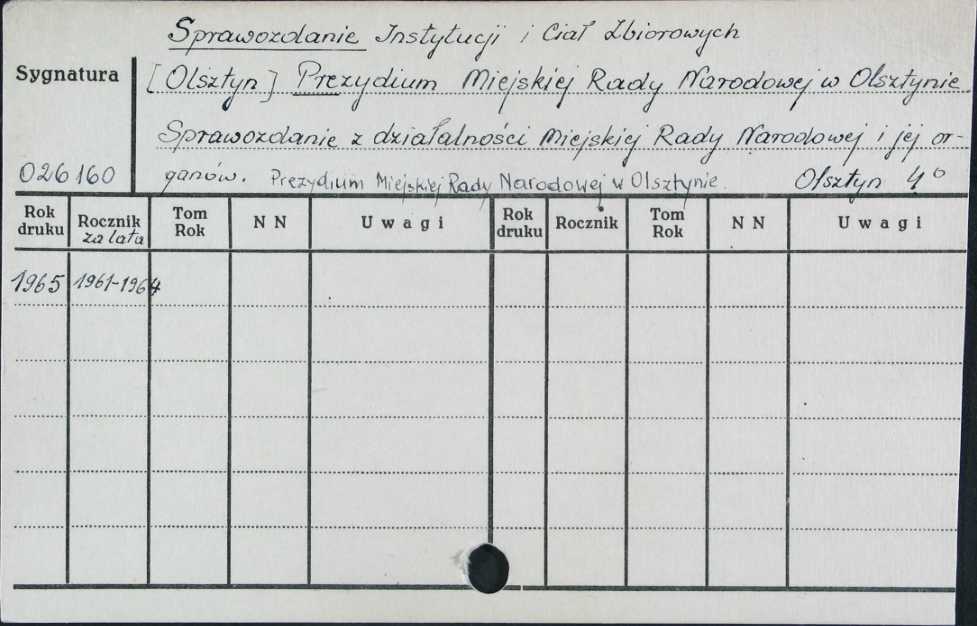 Sprawozdanie Instytucji i Ciał Zbiorowych
Sygnatura
[Olsztyn] Prezydium Miejskiej Rady Narodowej w Olsztynie.
Sprawozdanie z działalności Miejskiej Rady Narodowej i jej or-
026160
ganów. Prezydium Miejskiej Rady Narodowej w Olsztynie. Olsztyn 4°
Rok druku Rocznik za lata Tom Rok N N Uwagi Rok druku Rocznik Tom Rok N N Uwagi
1965 1961-1964